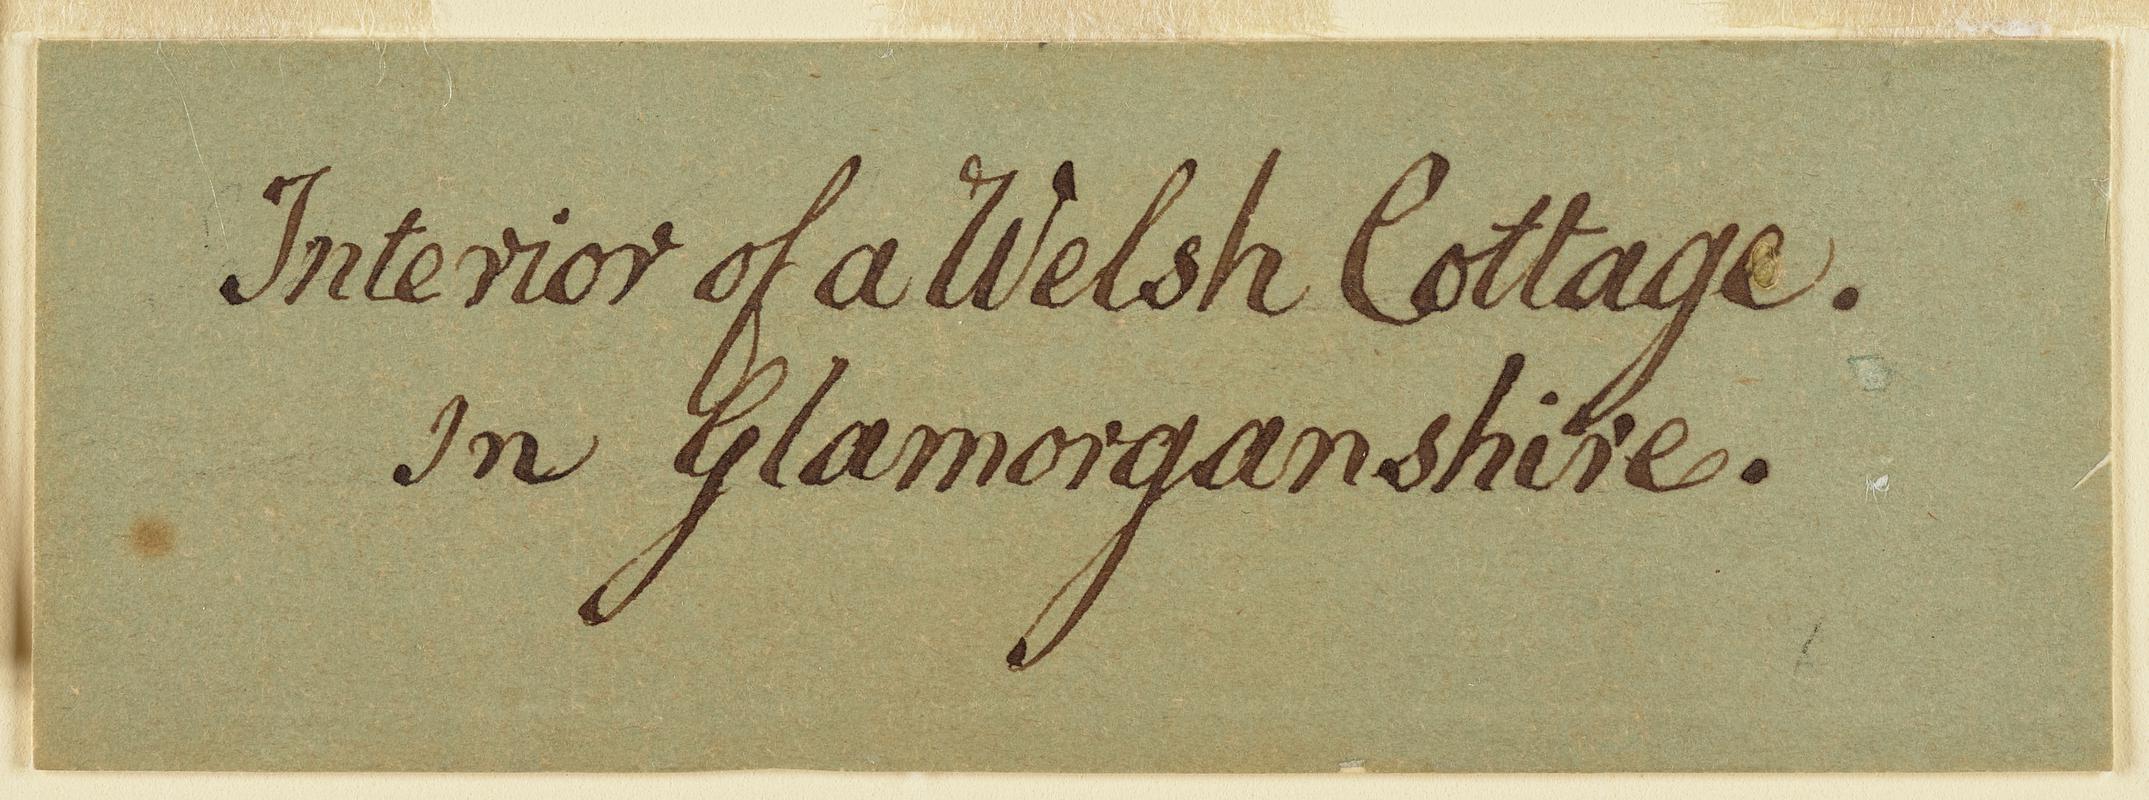 Interior of a Welsh Cottage.
in Glamorganshire.